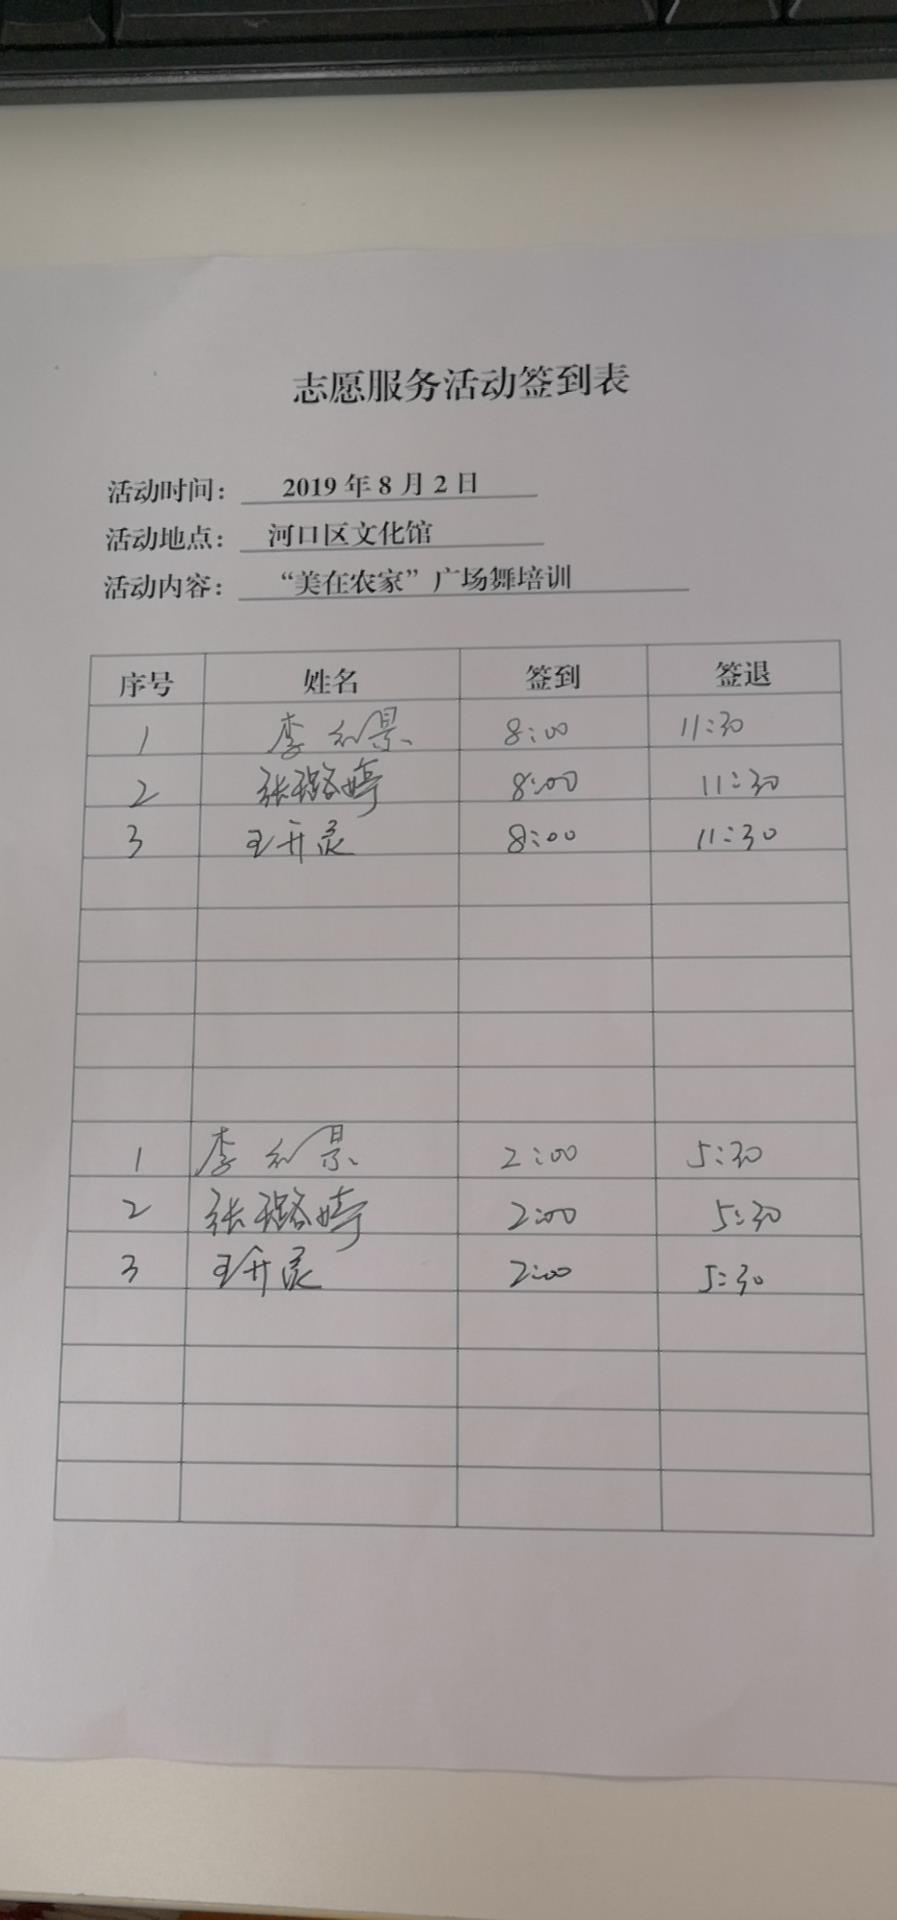 志愿服务活动签到表
活动时间： 2019年8月2日
活动地点： 河口区文化馆
活动内容： “美在农家”广场舞培训
序号 姓名 签到 签退
1 李 景 8:00 11:30
2 张璐婷 8:00 11:30
3 王开 8:00 11:30
1 李 景 2:00 5:30
2 张璐婷 2:00 5:30
3 王开 2:00 5:30